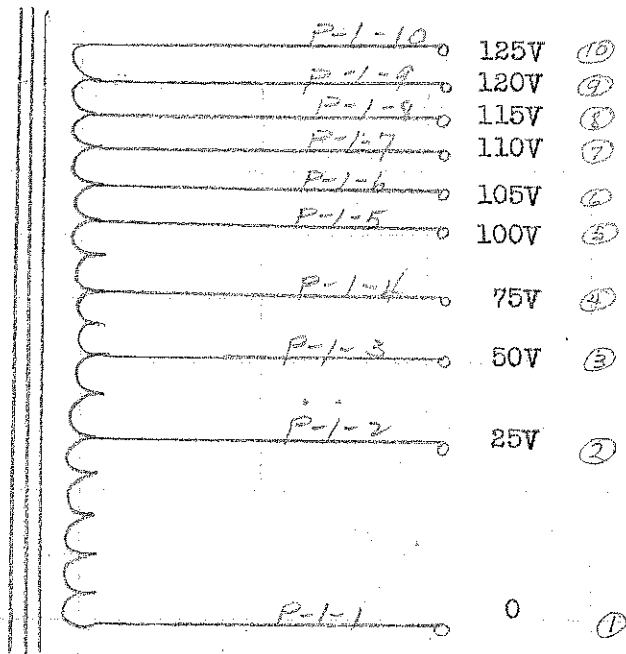 P-1-10 125V 10
P-1-9 120V 9
P-1-8 115V 8
P-1-7 110V 7
P-1-6 105V 6
P-1-5 100V 5
P-1-4 75V 4
P-1-3 50V 3
P-1-2 25V 2
P-1-1 0 1